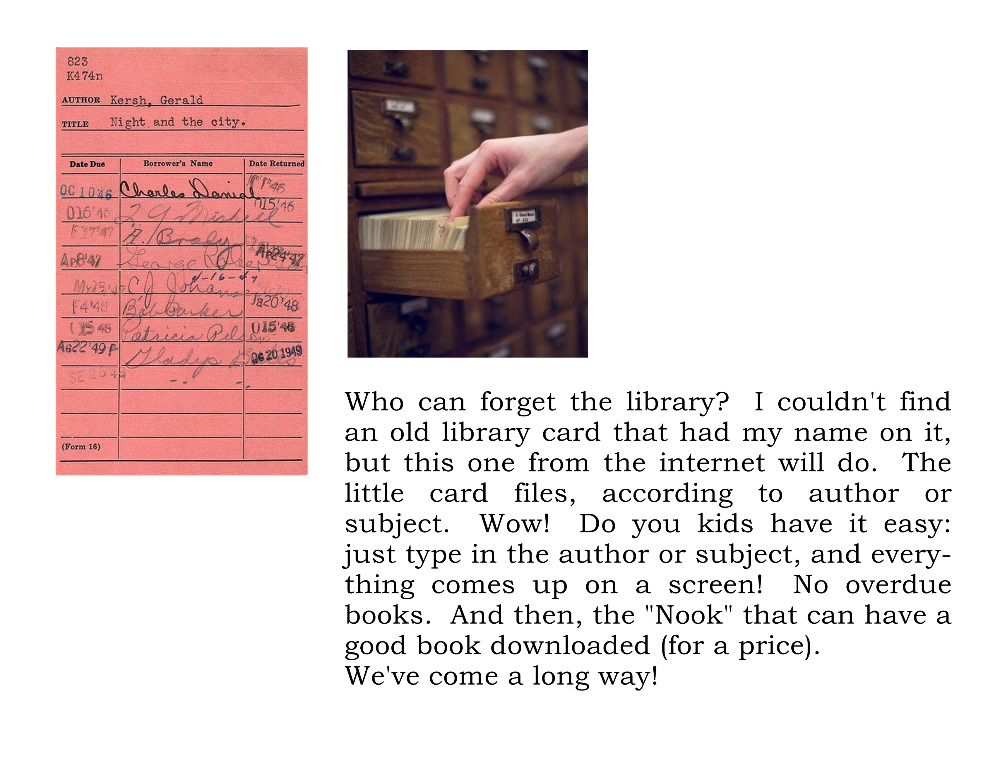 823
K474n
AUTHOR Kersh, Gerald
TITLE Night and the city.
Date Due Borrower's Name Date Returned
OC 10'46 Charles Daniel
O15'46
A. Brody
Ap8'47 George Ap24'47
4-16-47
C J
F4'48 Bob Barker Ja20'48
Patricia
Ag22'49 Gladys 20 1949
(Form 16)
Who can forget the library? I couldn't find
an old library card that had my name on it,
but this one from the internet will do. The
little card files, according to author or
subject. Wow! Do you kids have it easy:
just type in the author or subject, and every-
thing comes up on a screen! No overdue
books. And then, the "Nook" that can have a
good book downloaded (for a price).
We've come a long way!